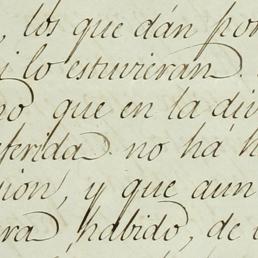 , los que dán por
i lo estuvieran.
no que en la div
eferida no há h
sion, y que aun
era habido, de l